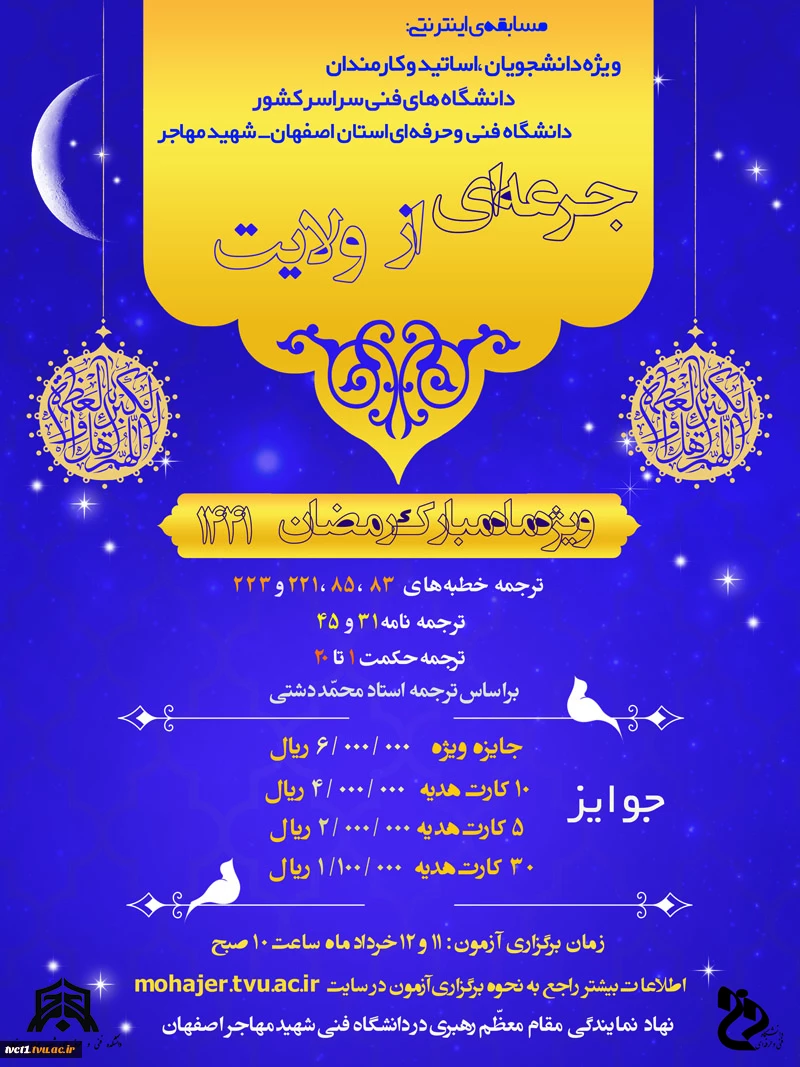 مسابقه‌ی اینترنتی:
ویژه دانشجویان ،اساتید و کارمندان
دانشگاه های فنی سراسر کشور
دانشگاه فنی و حرفه ای استان اصفهان_ شهید مهاجر
جرعه‌ای از ولایت
ویژه ماه مبارک رمضان ۱۴۴۱
ترجمه خطبه های ۸۳ ،۸۵ ،۲۲۱ و ۲۲۳
ترجمه نامه ۳۱ و ۴۵
ترجمه حکمت ۱ تا ۲۰
براساس ترجمه استاد محمّد دشتی
جوایز
جایزه ویژه ۶/۰۰۰/۰۰۰ ریال
۱۰ کارت هدیه ۴/۰۰۰/۰۰۰ ریال
۵ کارت هدیه ۲/۰۰۰/۰۰۰ ریال
۳۰ کارت هدیه ۱/۱۰۰/۰۰۰ ریال
زمان برگزاری آزمون: ۱۱ و ۱۲ خرداد ماه ساعت ۱۰ صبح
اطلاعات بیشتر راجع به نحوه برگزاری آزمون در سایت mohajer.tvu.ac.ir
نهاد نمایندگی مقام معظّم رهبری در دانشگاه فنی شهید مهاجر اصفهان
tvct1.tvu.ac.ir